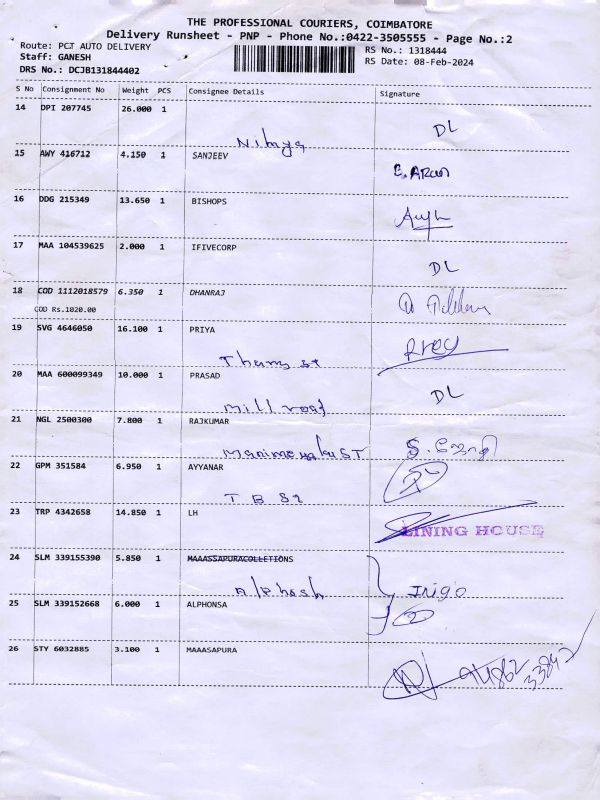 THE PROFESSIONAL COURIERS, COIMBATORE
Delivery Runsheet - PNP - Phone No.:0422-3505555 - Page No.:2
Route: PCJ AUTO DELIVERY RS No.: 1318444
Staff: GANESH RS Date: 08-Feb-2024
DRS No.: DCJB131844402
S No Consignment No Weight PCS Consignee Details Signature
14 DPI 207745 26.000 1
DL
Nithya
15 AWY 416712 4.150 1 SANJEEV
E. ARUN
16 DDG 215349 13.650 1 BISHOPS
17 MAA 104539625 2.000 1 IFIVECORP
DL
18 COD 1112018579 6.350 1 DHANRAJ
COD Rs.1020.00
19 SVG 4646050 16.100 1 PRIYA
Priya
20 MAA 600099349 10.000 1 PRASAD
DL
Mill road
21 NGL 2500300 7.800 1 RAJKUMAR
22 GPM 351584 6.950 1 AYYANAR
T B St
23 TRP 4342658 14.850 1 LH
LINING HOUSE
24 SLM 339155390 5.850 1 MAAASSAPURACOLLETIONS
Inigo
25 SLM 339152668 6.000 1 ALPHONSA
26 STY 6032885 3.100 1 MAAASAPURA